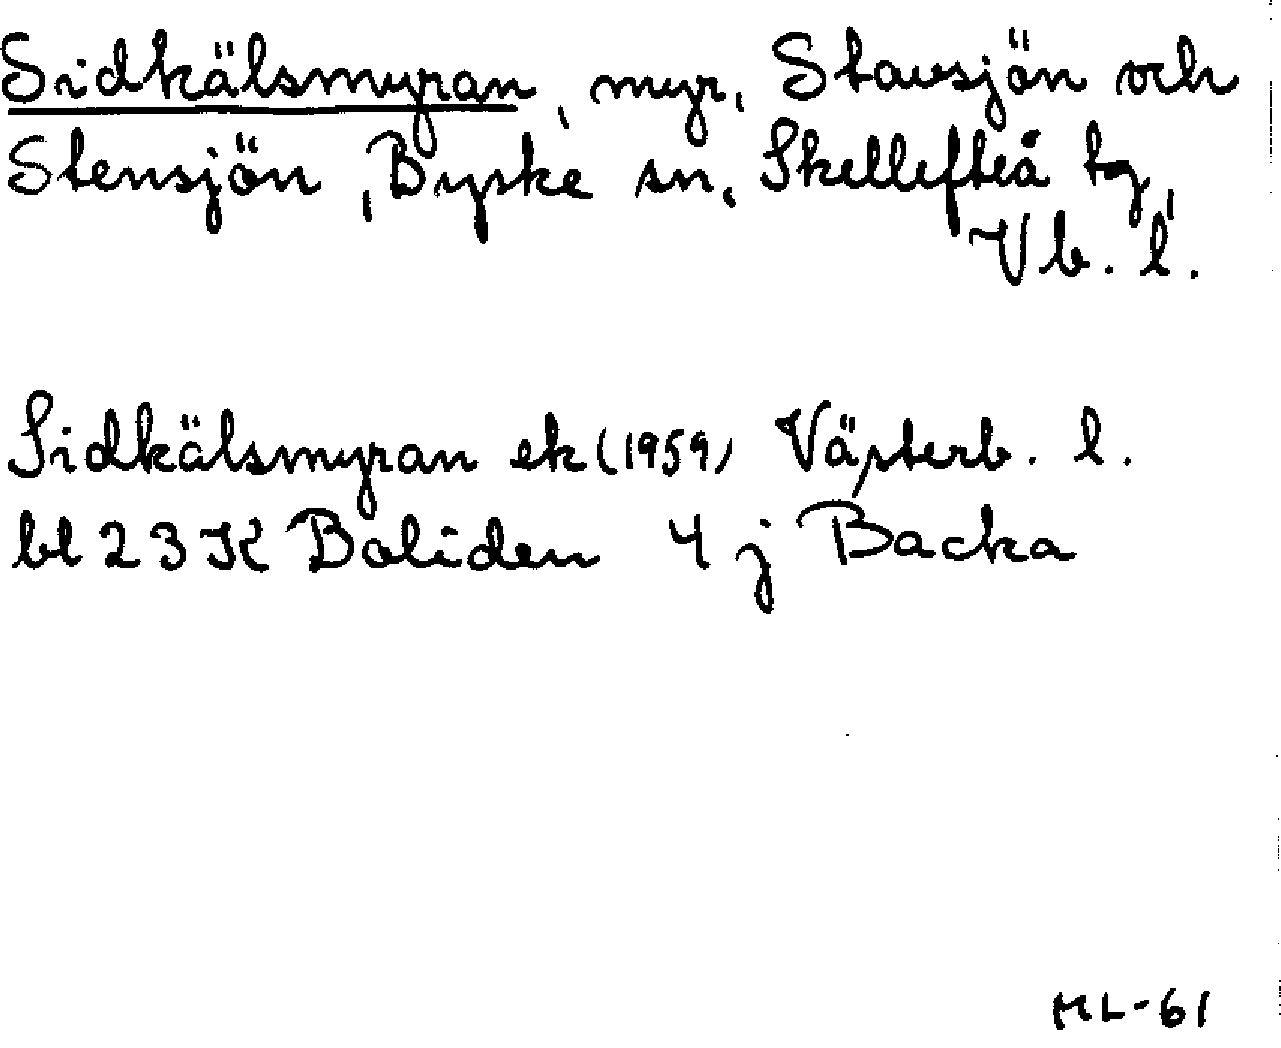 Sidkälsmyran, myr, Stavsjön och
Stensjön, Byske sn, Skellefteå tg,
Vb. l.
Sidkälsmyran ek (1959) Västerb. l.
bl 23 K Boliden 4 j Backa
ML-61